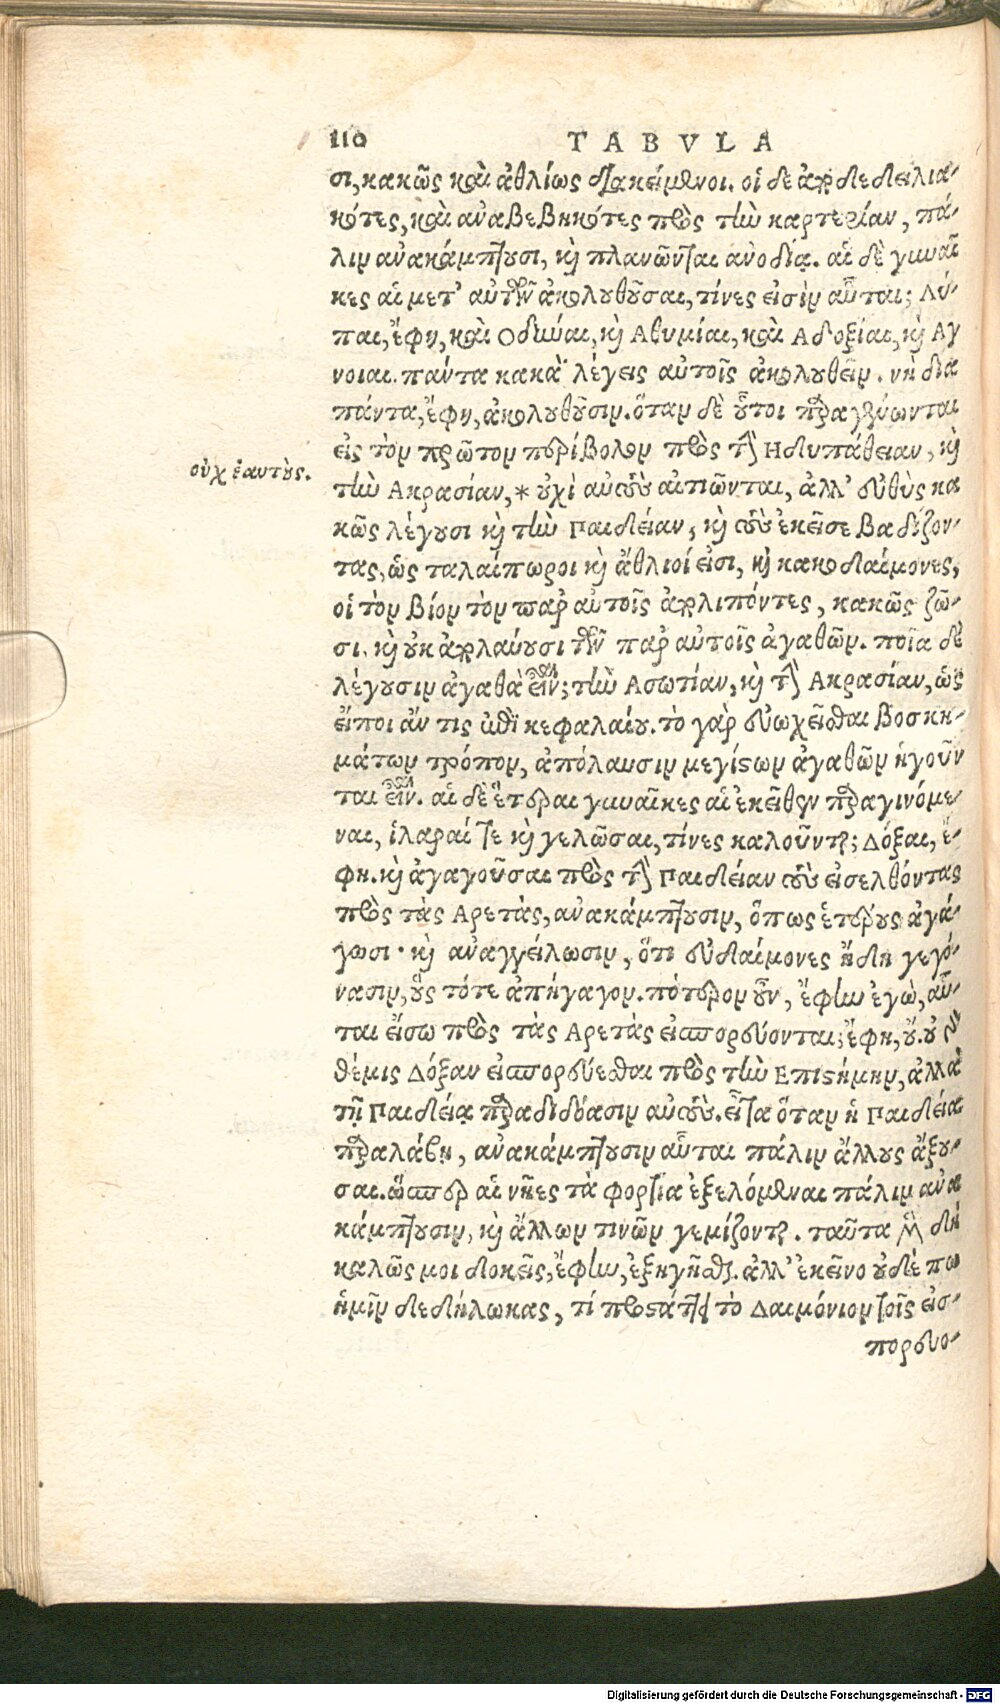 110 TABVLA
σι, κακῶς καὶ ἀθλίως διακείμενοι. οἱ δὲ ἀποδεδειλια-
κότες, καὶ ἀναβεβηκότες πρὸς τὴν καρτερίαν, πά-
λιν ἀνακάμπτουσι, καὶ πλανῶνται ἀνοδίᾳ. αἱ δὲ γυναῖ
κες αἱ μετ' αὐτῶν ἀκολουθοῦσαι, τίνες εἰσὶν αὗται; Λύ-
παι, ἔφη, καὶ Οδύναι, καὶ Αθυμίαι, καὶ Αδοξίαι, καὶ Αγ
νοιαι. πάντα κακὰ λέγεις αὐτοῖς ἀκολουθεῖν. νὴ δία
πάντα, ἔφη, ἀκολουθοῦσιν. ὅταν δὲ οὗτοι παραγένωνται
εἰς τὸν πρῶτον περίβολον πρὸς τὴν Ηδυπάθειαν, καὶ
οὐχ ἑαυτοὺς.
τὴν Ακρασίαν, * οὐχὶ αὐτοὺς αἰτιῶνται, ἀλλ' εὐθὺς κα
κῶς λέγουσι καὶ τὴν Παιδείαν, καὶ τοὺς ἐκεῖσε βαδίζον-
τας, ὡς ταλαίπωροι καὶ ἄθλιοί εἰσι, καὶ κακοδαίμονες,
οἱ τὸν βίον τὸν παρ' αὐτοῖς ἀπολιπόντες, κακῶς ζῶ-
σι, καὶ οὐκ ἀπολαύουσι τῶν παρ' αὐτοῖς ἀγαθῶν. ποῖα δὲ
λέγουσιν ἀγαθὰ εἶναι; τὴν Ασωτίαν, καὶ τὴν Ακρασίαν, ὡς
εἴποι ἄν τις ἐπὶ κεφαλαίου. τὸ γὰρ εὐωχεῖσθαι βοσκη-
μάτων τρόπον, ἀπόλαυσιν μεγίστων ἀγαθῶν ἡγοῦν
ται εἶναι. αἱ δὲ ἕτεραι γυναῖκες αἱ ἐκεῖθεν παραγινόμε-
ναι, ἱλαραί τε καὶ γελῶσαι, τίνες καλοῦνται; Δόξαι, ἔ-
φη. καὶ ἀγαγοῦσαι πρὸς τὴν Παιδείαν τοὺς εἰσελθόντας
πρὸς τὰς Αρετὰς, ἀνακάμπτουσιν, ὅπως ἑτέρους ἀγά-
γωσι· καὶ ἀναγγείλωσιν, ὅτι εὐδαίμονες ἤδη γεγό-
νασιν, οὓς τότε ἀπήγαγον. πότερον οὖν, ἔφην ἐγὼ, αὗ-
ται εἴσω πρὸς τὰς Αρετὰς εἰσπορεύονται; ἔφη, οὔ. οὐ γὰρ
θέμις Δόξαν εἰσπορεύεσθαι πρὸς τὴν Επιστήμην, ἀλλὰ
τῇ Παιδείᾳ παραδιδόασιν αὐτούς. εἶτα ὅταν ἡ Παιδεία
παραλάβῃ, ἀνακάμπτουσιν αὗται πάλιν ἄλλους ἄξου-
σαι. ὥσπερ αἱ νῆες τὰ φορτία ἐξελόμεναι πάλιν ἀνα
κάμπτουσιν, καὶ ἄλλων τινῶν γεμίζονται. ταῦτα μὲν δὴ
καλῶς μοι δοκεῖς, ἔφην, ἐξηγῆσθαι. ἀλλ' ἐκεῖνο οὐδέ πω
ἡμῖν δεδήλωκας, τί προστάττει τὸ Δαιμόνιον τοῖς εἰσ-
πορευο-
Digitalisierung gefördert durch die Deutsche Forschungsgemeinschaft - DFG